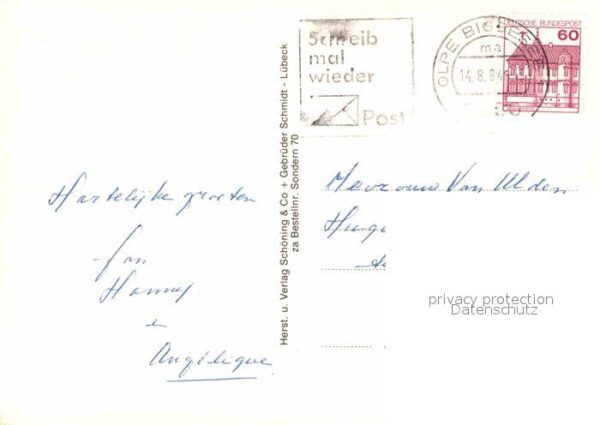 Schreib
mal
wieder
Post
OLPE BIGGESEE
ma
14.8.84
DEUTSCHE BUNDESPOST
60
Hartelijke groeten
Jan
Hanny
en
Angélique
Herst. u. Verlag Schöning & Co + Gebrüder Schmidt - Lübeck
za Bestellnr. Sondern 70
Mevrouw Van Ulden
privacy protection
Datenschutz